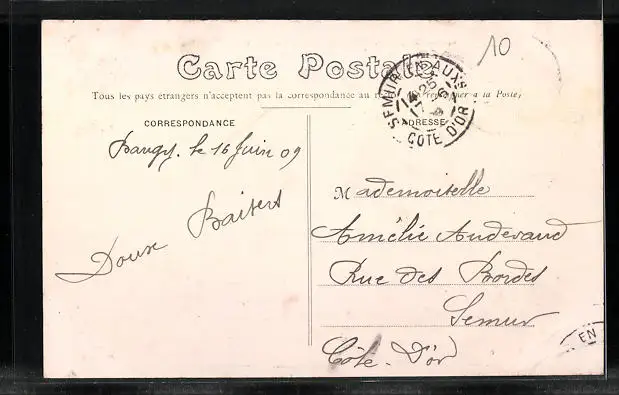 10
Carte Postale
Tous les pays étrangers n'acceptent pas la correspondance au à la Poste)
SEMUR EN AUXS
14 25
17 - 6
CÔTE D'OR
CORRESPONDANCE
ADRESSE
le 16 Juin 09
Doux Baisers
Mademoiselle
Amélie
Rue des Bordes
Semur
Côte-D'Or
EN